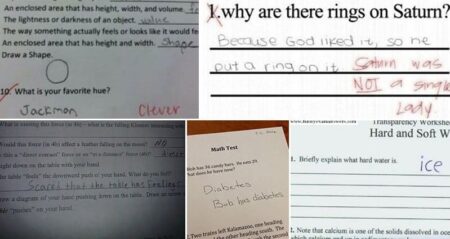 An enclosed area that has height, width, and volume.
The lightness or darkness of an object. value
The way something actually feels or looks like it would fe
An enclosed area that has height and width. Shape
Draw a Shape.
10. What is your favorite hue?
Jackman Clever
1. why are there rings on Saturn?
Because God liked it, so he
put a ring on it Saturn was
NOT a single
Lady.
Would this force (in 4b) affect a feather falling on the moon? NO
right down on the table with your hand
the table "feels" the downward push of your hand. What do you feel?
Scared that the table has feelings
draw a diagram of your hand pushing down on the table.
"pushes" on your hand.
Math Test
Bob has 36 candy bars. He eats 29.
What does he have now?
Diabetes
Bob has diabetes
1. Two trains left Kalamazoo, one heading
the other heading south. The
Transparency Workshe
Hard and Soft W
1. Briefly explain what hard water is.
ice
2. Note that calcium is one of the solids dissolved in oce